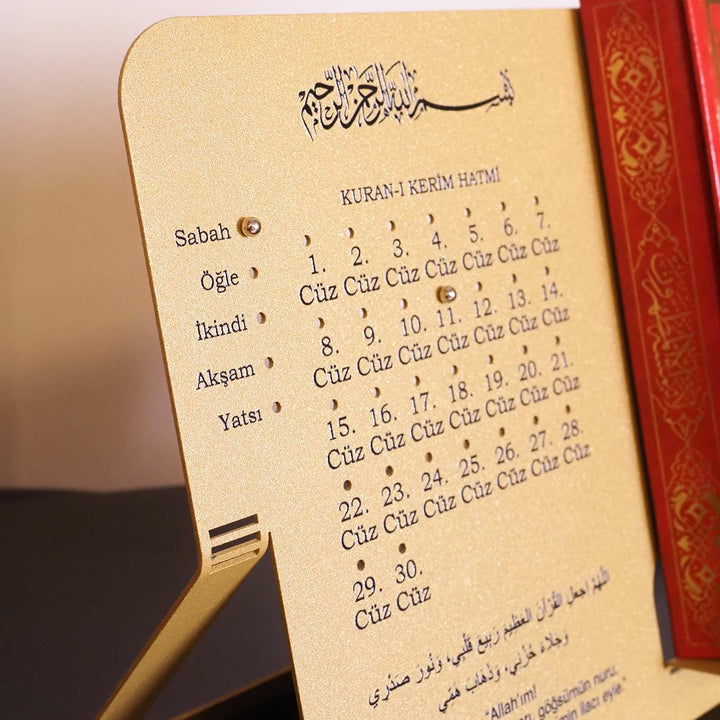 بسم الله الرحمن الرحيم
KURAN-I KERİM HATMİ
Sabah
Öğle
İkindi
Akşam
Yatsı
1. 2. 3. 4. 5. 6. 7.
Cüz Cüz Cüz Cüz Cüz Cüz Cüz
8. 9. 10. 11. 12. 13. 14.
Cüz Cüz Cüz Cüz Cüz Cüz Cüz
15. 16. 17. 18. 19. 20. 21.
Cüz Cüz Cüz Cüz Cüz Cüz Cüz
22. 23. 24. 25. 26. 27. 28.
Cüz Cüz Cüz Cüz Cüz Cüz Cüz
29. 30.
Cüz Cüz
اللَّهُمَّ اجْعَلِ الْقُرْآنَ الْعَظِيمَ رَبِيعَ قَلْبِي، وَنُورَ صَدْرِي
وَجَلَاءَ حُزْنِي، وَذَهَابَ هَمِّي
"Allah'ım!
göğsümün nuru,
ilacı eyle."